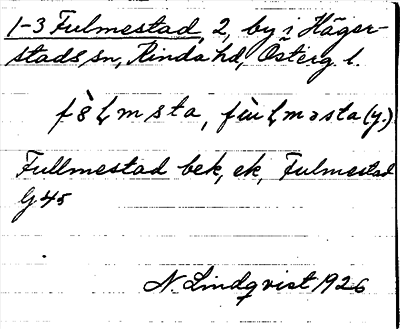 1-3 Fulmestad, 2, by i Häger-
stads sn, Kinda hd, Österg. l.
Fullmestad bek, ek, Fulmestad
G 45
N. Lindqvist 1926